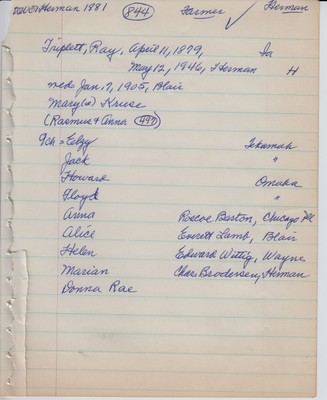 Herman 1881 844 Farmer ✓ Herman
Triplett, Ray, April 11, 1879, Ia
May 12, 1946, Herman H
med. Jan. 7, 1905, Blair
Mary Kruse
(Rasmus & Anna 497)
9ch = Elzy Tekamah
Jack "
Howard Omaha
Floyd "
Anna Roscoe Barton, Chicago Ill
Alice Everett Lamb, Blair
Helen Edward Wittig, Wayne
Marian Chas Brodersen, Herman
Donna Rae